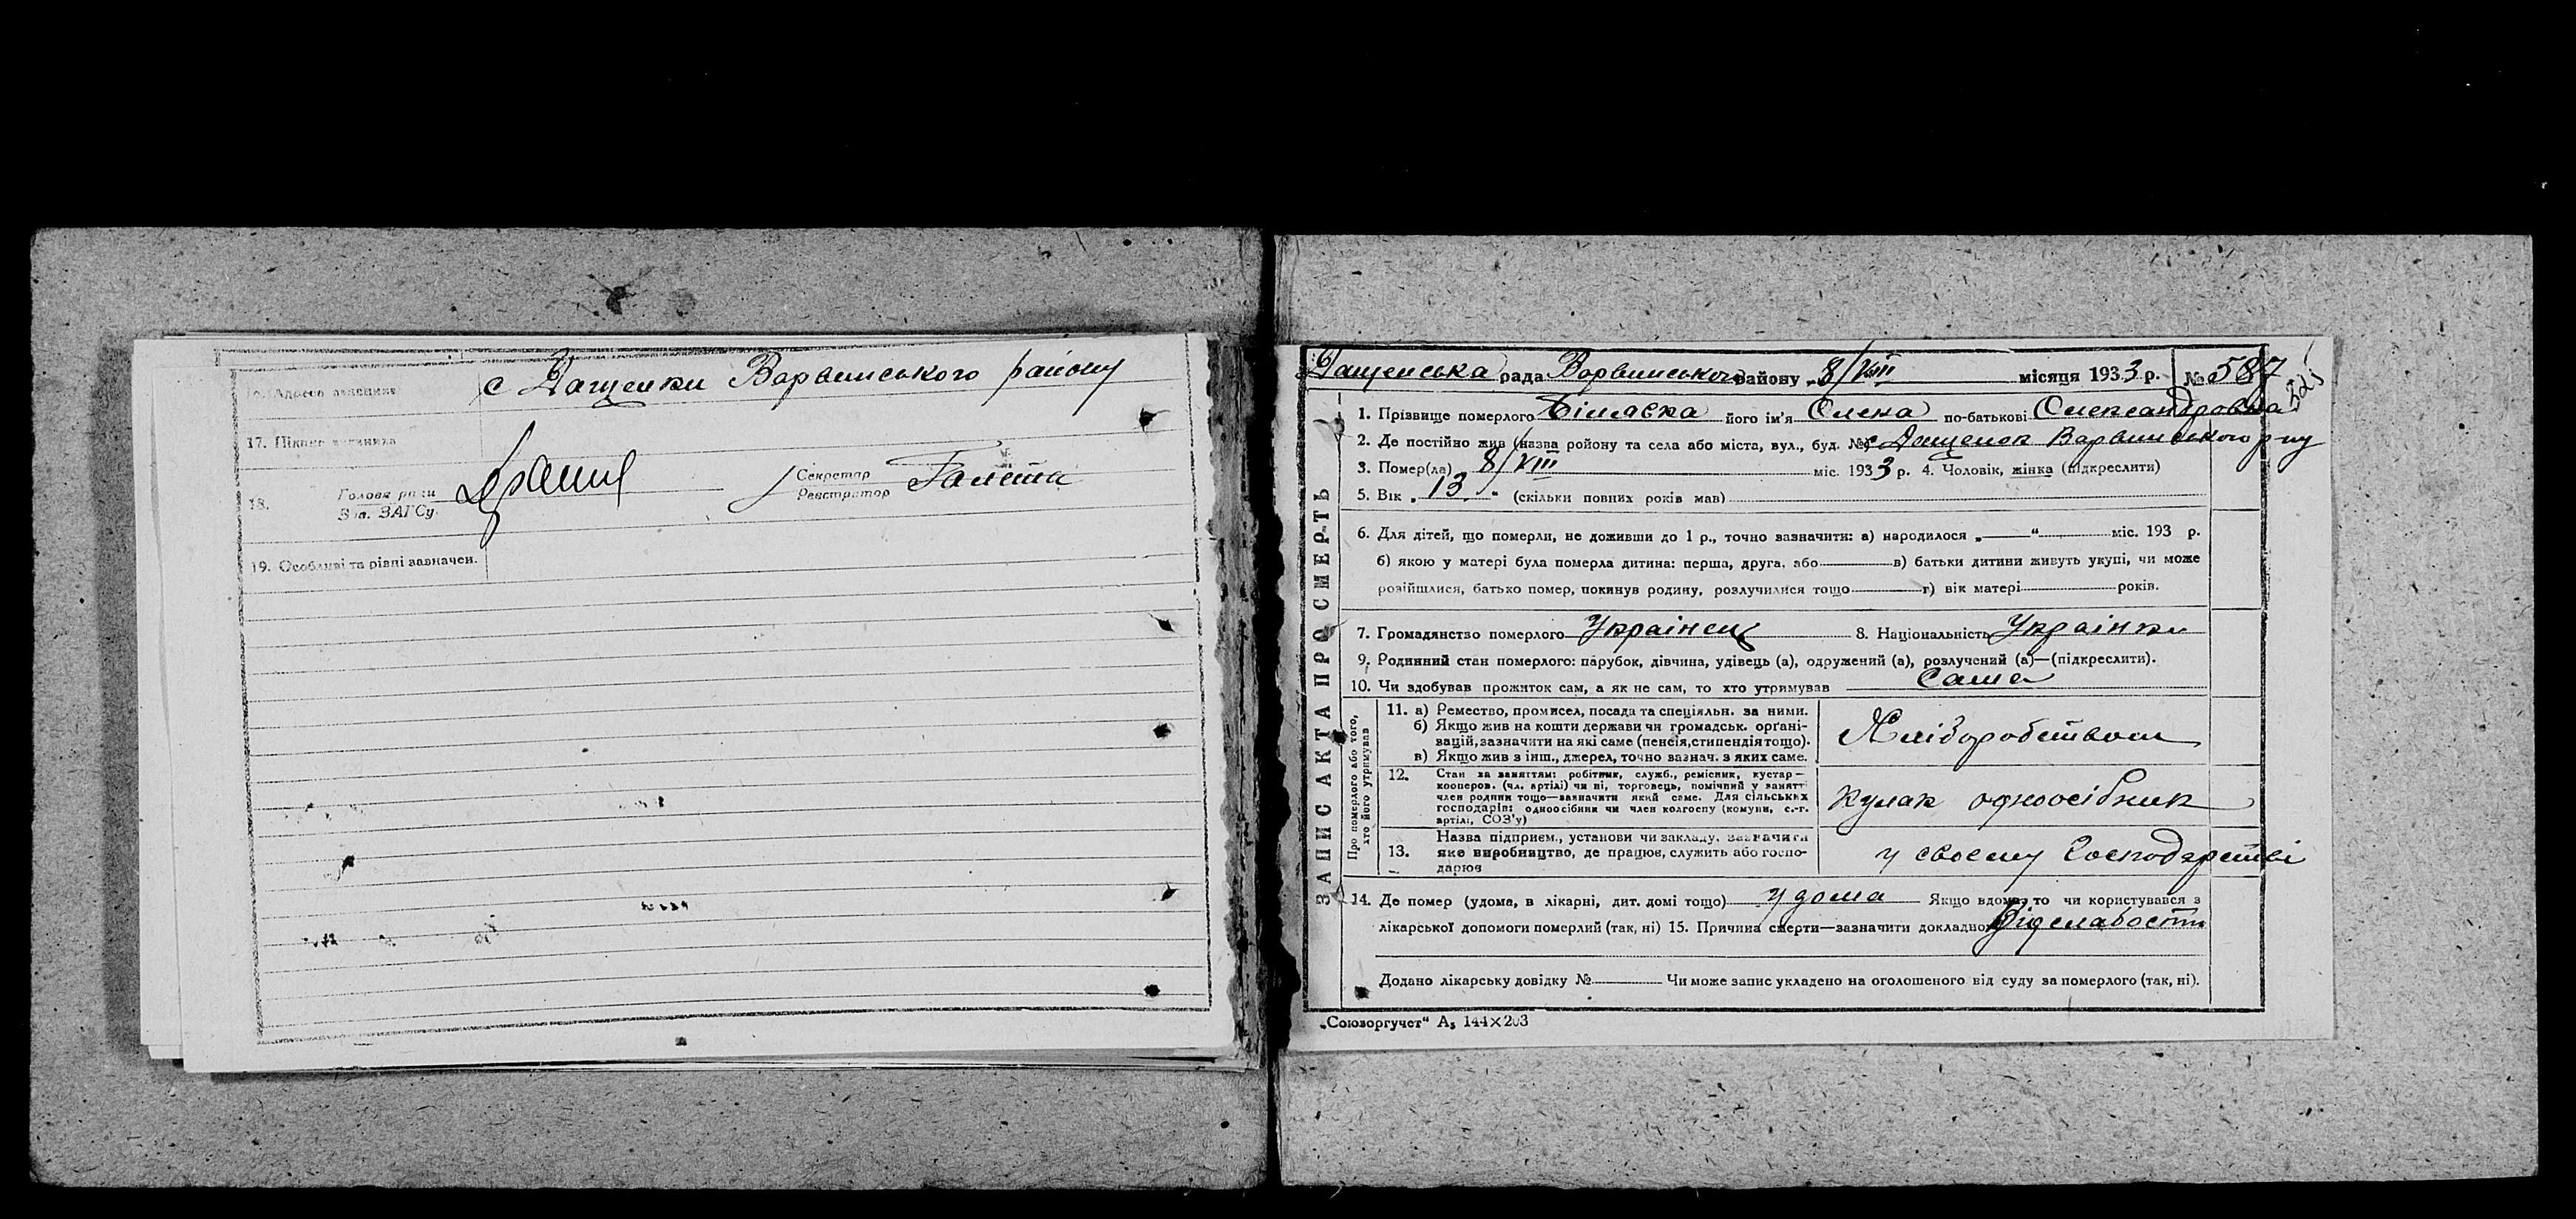 16. Адреса заявника с Дащенки Варвинського району
17. Підпис заявника
18. Голова ради Секретар Галета
Зав. ЗАГСу Реєстратор
19. Особливі та рівні зазначен.
ЗАПИС АКТА ПРО СМЕРТЬ
Дащенська рада Варвинського району „ 8/VIII місяця 1933 р. № 587
1. Прізвище померлого його ім'я Олена по-батькові Олександровна
2. Де постійно жив (назва району та села або міста, вул., буд. №) с Дащенок Варвинського р-ну
3. Помер(ла) 8/VIII міс. 1933 р. 4. Чоловік, жінка (підкреслити)
5. Вік „ 13 “ (скільки повних років мав)
6. Для дітей, що померли, не доживши до 1 р., точно зазначити: а) народилося „ “ міс. 193 р.
б) якою у матері була померла дитина: перша, друга, або в) батьки дитини живуть укупі, чи може
розійшлися, батько помер, покинув родину, розлучилися тощо г) вік матері років.
7. Громадянство померлого Украінец 8. Національність Украінка
9. Родинний стан померлого: парубок, дівчина, удівець (а), одружений (а), розлучений (а)—(підкреслити).
10. Чи здобував прожиток сам, а як не сам, то хто утримував Сама
Про померлого або того, хто його утримував
11. а) Ремество, промисел, посада та спеціяльн. за ними.
б) Якщо жив на кошти держави чи громадськ. орґані-
зацій, зазначити на які саме (пенсія, стипендія тощо).
в) Якщо жив з інш., джерел, точно зазнач. з яких саме.
Хліборобством
12. Стан за заняттям: робітник, служб., ремісник, кустар—
кооперов. (чл. артілі) чи ні, торговець, помічний у занятт.
член родини тощо—зазначити який саме. Для сільських
господарів: одноосібний чи член колгоспу (комуни, с.-г.
артілі, СОЗ'у)
Кулак одноосібник
13. Назва підприєм., установи чи закладу, зазначити
яке виробництво, де працює, служить або госпо-
дарює
у своему господарстві
14. Де помер (удома, в лікарні, дит. домі тощо) у дома Якщо вдома, то чи користувався з
лікарської допомоги померлий (так, ні) 15. Причина смерти—зазначити докладно Від слабости
Додано лікарську довідку № Чи може запис укладено на оголошеного від суду за померлого (так, ні).
„Союзоргучет“ А5 144×203